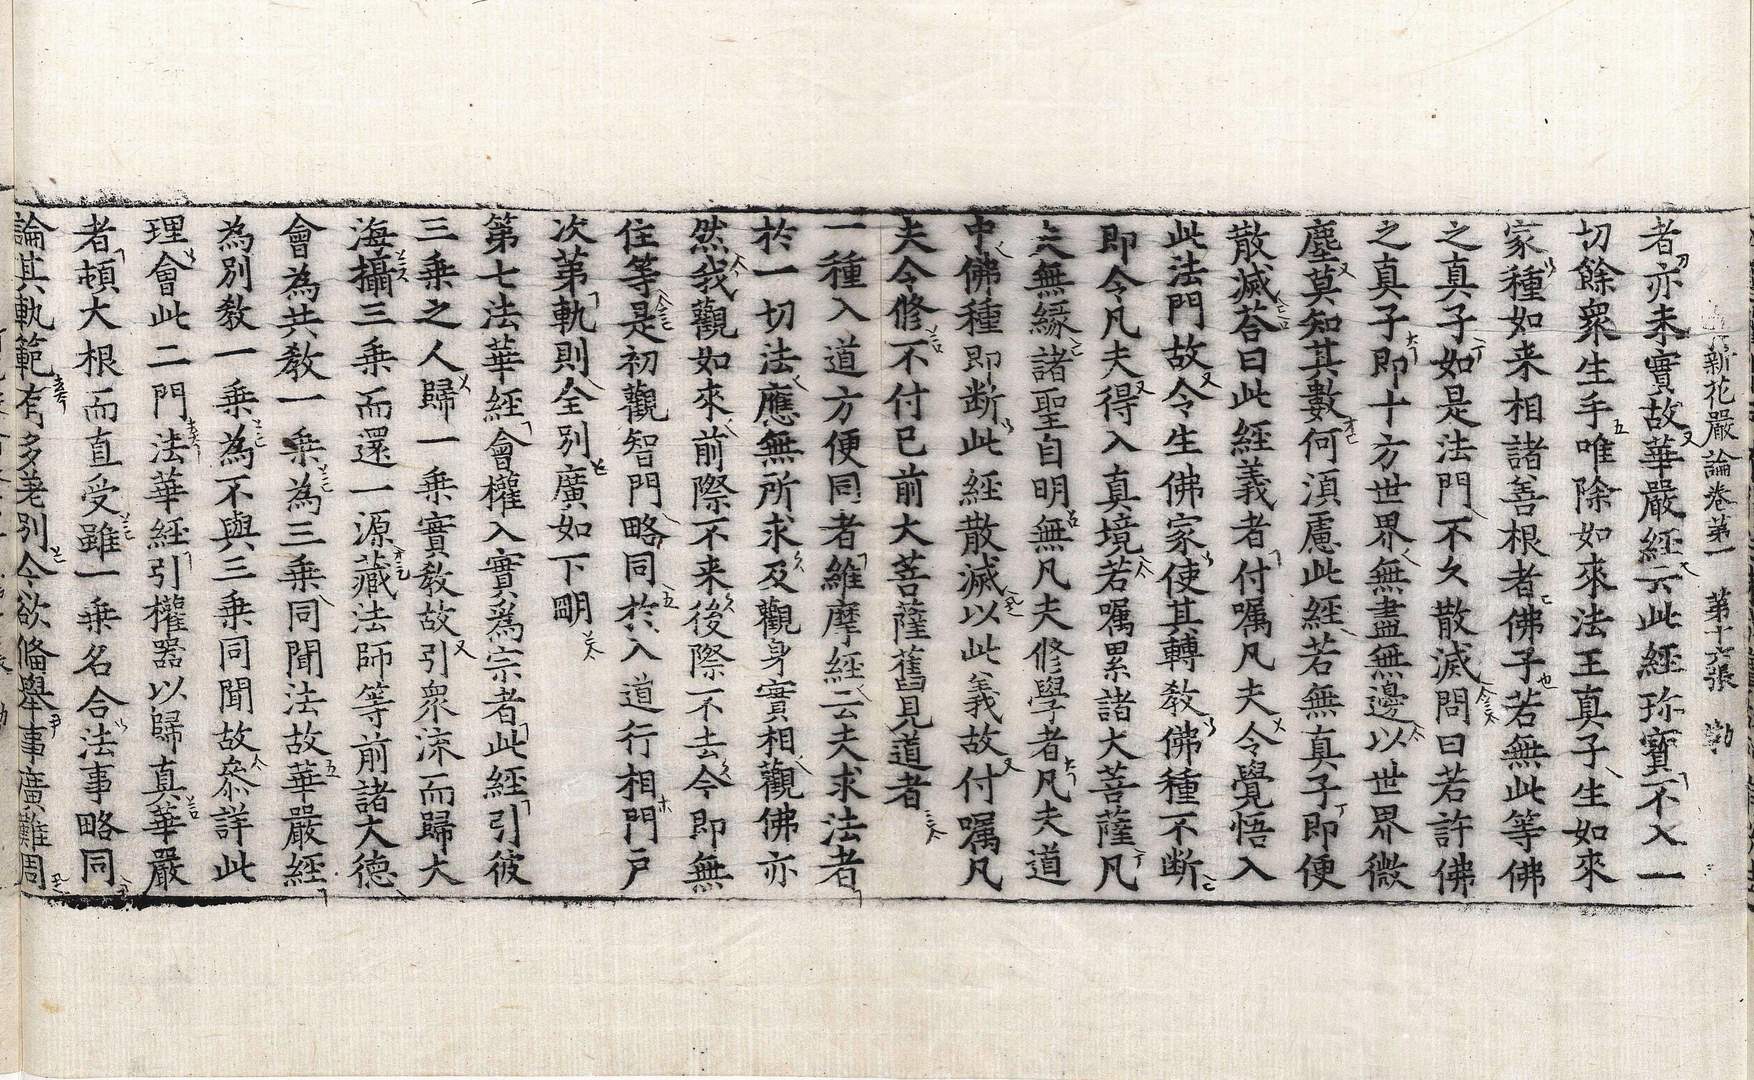 新花嚴論卷第一　第十六張　勃
者亦未實故華嚴經云此經珎寶不入一
切餘衆生手唯除如來法王真子生如來
家種如来相諸善根者佛子若無此等佛
之真子如是法門不久散滅問曰若許佛
之真子即十方世界無盡無邊以世界微
塵莫知其數何湏慮此經若無真子即便
散滅荅曰此經義者付嘱凡夫令覺悟入
此法門故令生佛家使其轉教佛種不断
即令凡夫得入真境若嘱累諸大菩薩凡
夫無緣諸聖自明無凡夫修學者凡夫道
中佛種即断此經散滅以此義故付嘱凡
夫令修不付已前大菩薩舊見道者
一種入道方便同者維摩經云夫求法者
於一切法應無所求及觀身實相觀佛亦
然我觀如來前際不来後際不去今即無
住等是初觀智門略同於入道行相門户
次第軌則全別廣如下明
第七法華經會權入實爲宗者此經引彼
三乗之人歸一乗實教故引衆流而歸大
海攝三乗而還一源藏法師等前諸大德
會為共教一乗為三乗同聞法故華嚴經
為別教一乗為不與三乗同聞故叅詳此
理會此二門法華經引權器以歸真華嚴
者頓大根而直受雖一乗名合法事略同
論其軌範有多差別今欲俻舉事廣難周